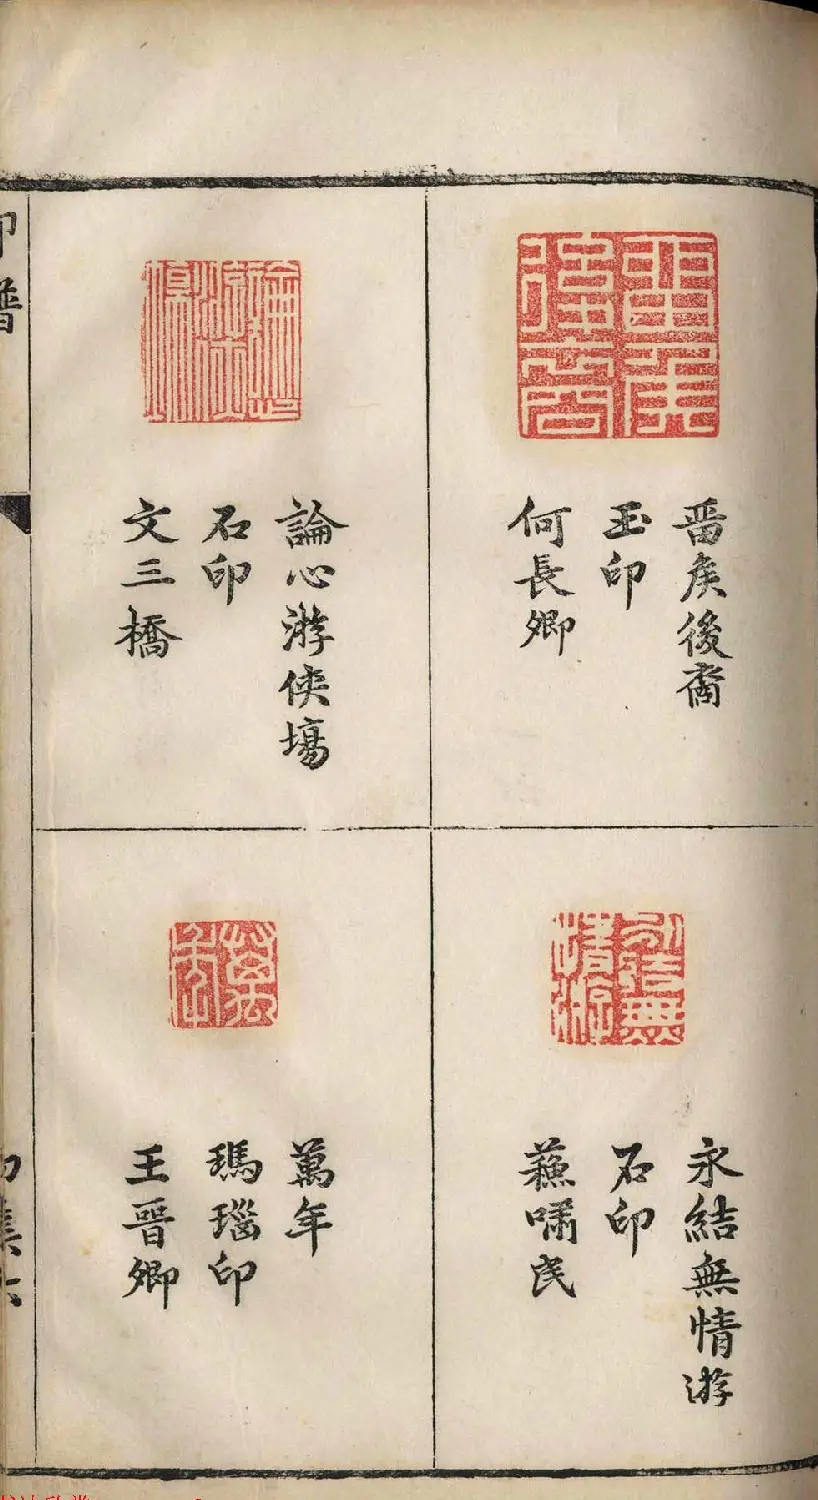 畱矦後裔
玉印
何長卿
論心游俠塲
石印
文三橋
永結無情游
石印
蘓嘯民
萬年
瑪瑙印
王晉卿
印譜